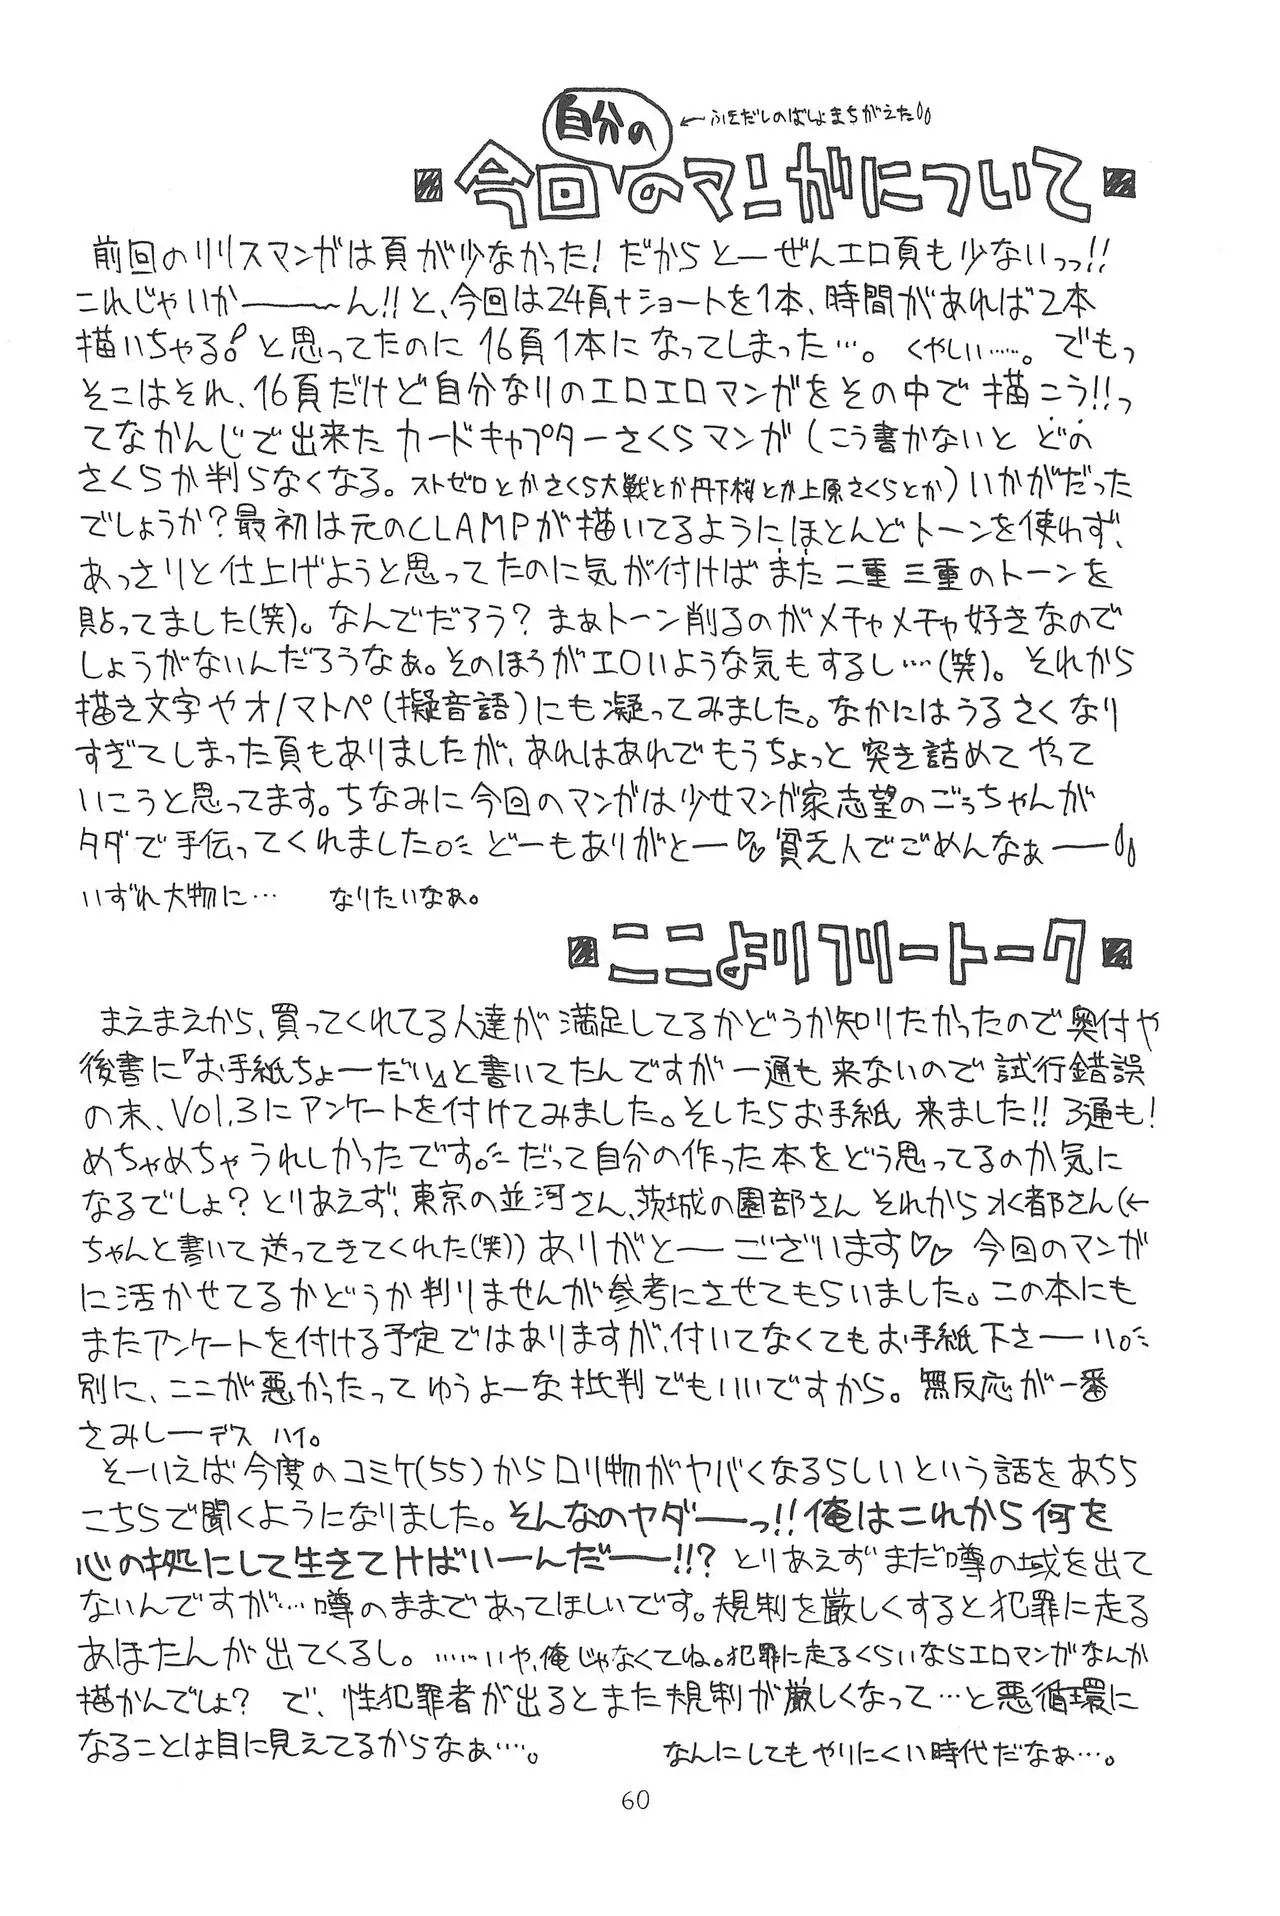 自分の
←ふきだしのばしょまちがえた
今回のマンガについて
前回のリリスマンガは頁が少なかった!だからとーぜんエロ頁も少ないっっ!!
これじゃいかーーー〜ん!!と、今回は24頁+ショートを1本、時間があれば2本
描いちゃる!と思ってたのに16頁1本になってしまった…。くやしい……。でもっ
そこはそれ、16頁だけど自分なりのエロエロマンガをその中で描こう!!っ
てなかんじで出来たカードキャプターさくらマンガ(こう書かないとどの
さくらか判らなくなる。ストゼロとかさくら大戦とか丹下桜とか上原さくらとか)いかがだった
でしょうか?最初は元のCLAMPが描いてるようにほとんどトーンを使わず、
あっさりと仕上げようと思ってたのに気が付けばまた二重三重のトーンを
貼ってました(笑)。なんでだろう?まぁトーン削るのがメチャメチャ好きなので
しょうがないんだろうなぁ。そのほうがエロいような気もするし……(笑)。それから
描き文字やオノマトペ(擬音語)にも凝ってみました。なかにはうるさくなり
すぎてしまった頁もありましたが、あれはあれでもうちょっと突き詰めてやって
いこうと思ってます。ちなみに今回のマンガは少女マンガ家志望のごぅちゃんが
タダで手伝ってくれました。どーもありがとー♡貧乏人でごめんなぁー
いずれ大物に… なりたいなぁ。
ここよりフリートーク
まえまえから、買ってくれてる人達が満足してるかどうか知りたかったので奥付や
後書に『お手紙ちょーだい』と書いてたんですが一通も来ないので試行錯誤
の末、Vol.3にアンケートを付けてみました。そしたらお手紙来ました!!3通も!
めちゃめちゃうれしかったです。だって自分の作った本をどう思ってるのか気に
なるでしょ?とりあえず、東京の並河さん、茨城の園部さんそれから水都さん(←
ちゃんと書いて送ってきてくれた(笑))ありがとーございます♡♡今回のマンガ
に活かせてるかどうか判りませんが参考にさせてもらいました。この本にも
またアンケートを付ける予定ではありますが、付いてなくてもお手紙下さーい。
別に、ここが悪かったってゆうよーな批判でもいいですから。無反応が一番
さみしーデス ハイ。
そーいえば今度のコミケ(55)からロリ物がヤバくなるらしいという話をあちら
こちらで聞くようになりました。そんなのヤダーーっ!!俺はこれから何を
心の拠処にして生きてけばいーんだーー!!?とりあえずまだ噂の域を出て
ないんですが…噂のままであってほしいです。規制を厳しくすると犯罪に走る
あほたんが出てくるし。……いや、俺じゃなくてね。犯罪に走るくらいならエロマンガなんか
描かんでしょ?で、性犯罪者が出るとまた規制が厳しくなって…と悪循環に
なることは目に見えてるからなぁ…。 なんにしてもやりにくい時代だなぁ…。
60